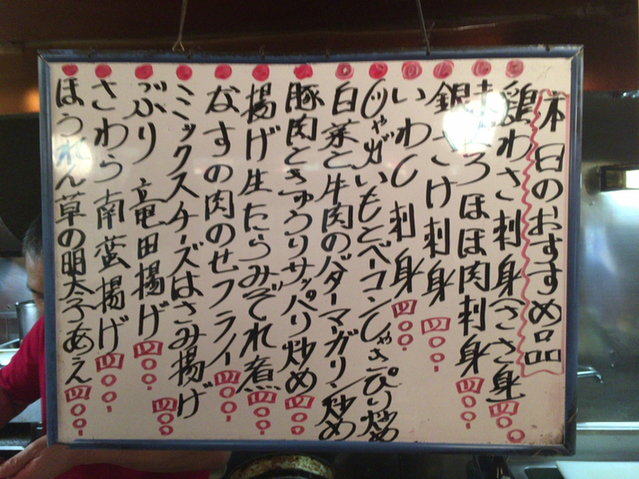 本日のおすすめ品
鶏わさ刺身(ささ身) 四〇〇
まぐろほほ肉刺身 四〇〇
銀さけ刺身 四〇〇
いわし刺身 四〇〇
じゃがいもとベーコンしゃきぴり炒め
白菜と牛肉のバターマーガリン炒め
豚肉ときゅうりサッパリ炒め 四〇〇
揚げ生たらみぞれ煮 四〇〇
なすの肉のせフライ 四〇〇
ミックスチーズはさみ揚げ 四〇〇
ぶり竜田揚げ 四〇〇
さわら南蛮揚げ 四〇〇
ほうれん草の明太子あえ 四〇〇